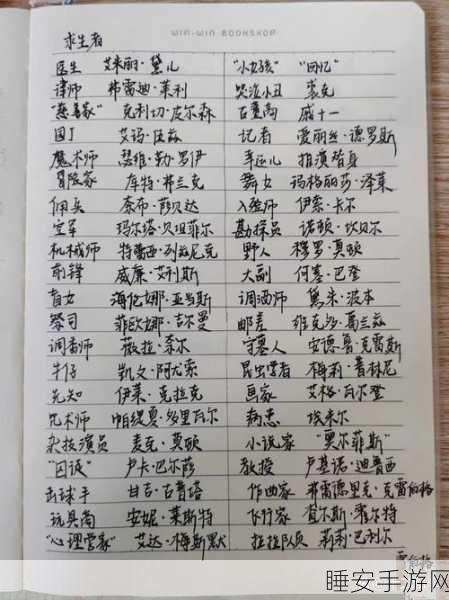 WIN-WIN BOOKSHOP
求生者
医生 艾米丽·黛儿 "小女孩" "回忆"
律师 弗雷迪·莱利 哭泣小丑 裘克
"慈善家" 克利切·皮尔森 古董商 戚十一
园丁 艾玛·伍兹 记者 爱丽丝·德罗斯
魔术师 瑟维·勒·罗伊
冒险家 库特·弗兰克 舞女 玛格丽莎·泽莱
佣兵 奈布·萨贝达 入殓师 伊索·卡尔
空军 玛尔塔·贝坦菲尔 勘探员 诺顿·坎贝尔
机械师 特蕾西·列兹尼克 野人 穆罗·莫顿
前锋 威廉·艾利斯 大副 何塞·巴登
盲女 海伦娜·亚当斯 调酒师 黛米·波本
祭司 菲欧娜·吉尔曼 邮差 维克多·葛兰兹
调香师 薇拉·奈尔 守墓人 安德鲁·克雷斯
牛仔 凯文·阿尤索 昆虫学者 梅莉·普林尼
先知 伊莱·克拉克 画家 艾格·瓦尔登
咒术师 帕缇夏·多里瓦尔 病患 埃米尔
杂技演员 麦克·莫顿 小说家 "奥尔菲斯"
"囚徒" 卢卡·巴尔萨 教授 卢基诺·迪鲁西
击球手 甘吉·古普塔 作曲家 弗雷德里克·克雷伯格
玩具商 安妮·莱斯特 飞行家 查尔斯·霍尔特
"心理学家" 艾达·梅斯默 拉拉队员 莉莉·巴利尔
睡安手游网